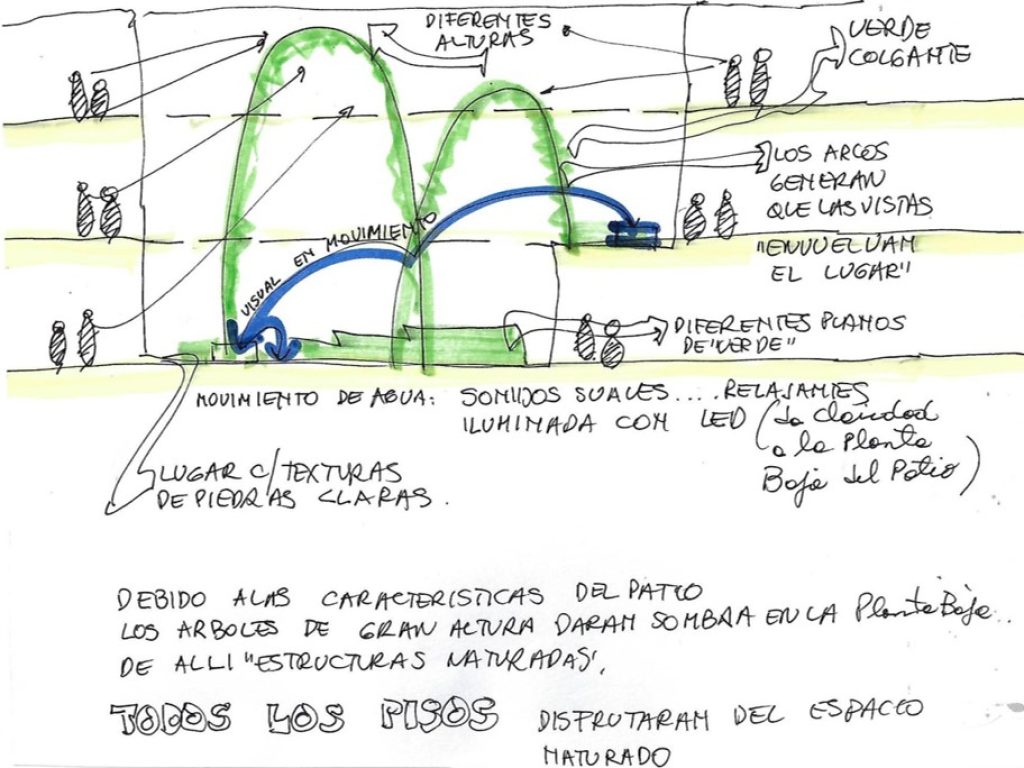 DIFERENTES
ALTURAS
VERDE
COLGANTE
LOS ARCOS
GENERAN
QUE LAS VISTAS
"ENVUELVAN
EL LUGAR"
VISUAL EN MOVIMIENTO
DIFERENTES PLANOS
DE "VERDE"
MOVIMIENTO DE AGUA: SONIDOS SUAVES.... RELAJANTES
ILUMINADA CON LED (da claridad
a la Planta
Baja del Patio)
LUGAR C/TEXTURAS
DE PIEDRAS CLARAS.
DEBIDO A LAS CARACTERISTICAS DEL PATIO
LOS ARBOLES DE GRAN ALTURA DARAN SOMBRA EN LA Planta Baja..
DE ALLI "ESTRUCTURAS NATURADAS".
TODOS LOS PISOS DISFRUTARAN DEL ESPACIO
NATURADO